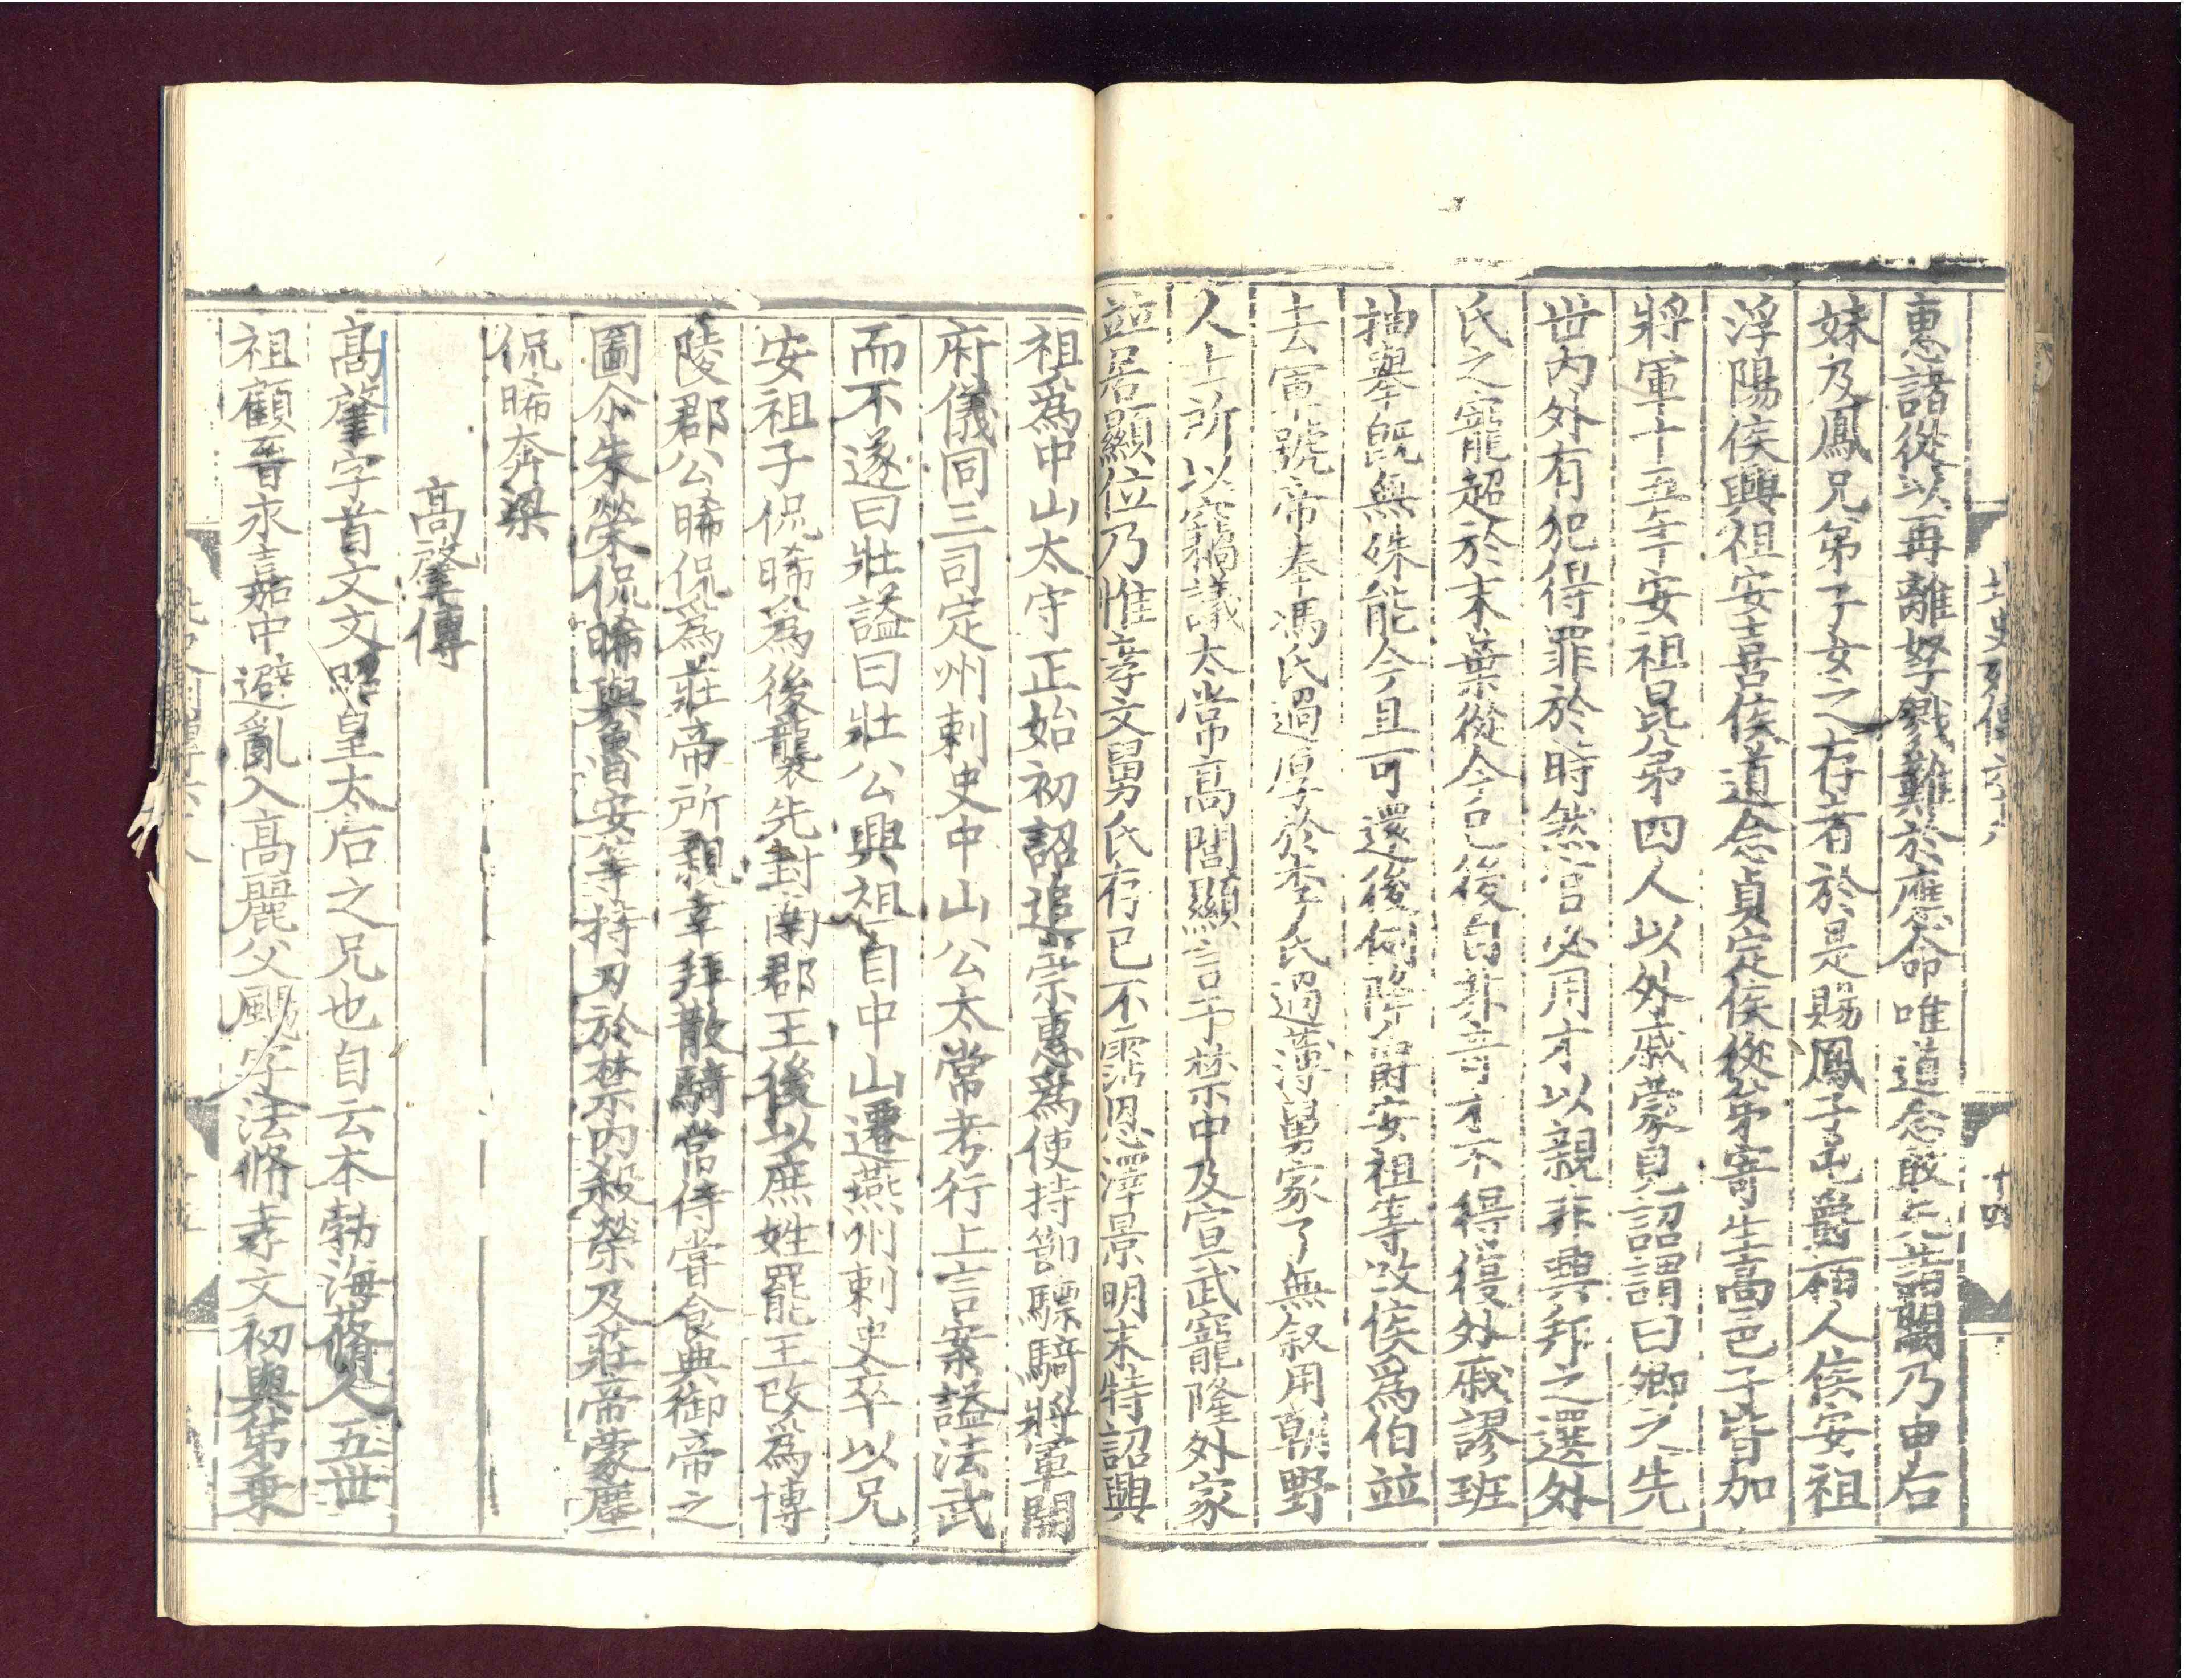 北史列傳六十八
十四
惠諸從以再離孥戮難於應命唯道念敢先詣闕乃申后
妹及鳳兄弟子女之存者於是賜鳳子屯爵栢人侯安祖
浮陽侯興祖安喜侯道念真定侯從弟寄生高邑子皆加
將軍十五年安祖昆弟四人以外戚蒙見詔謂曰卿之先
世内外有犯得罪於時然官必用才以親非興邦之選外
氏之寵超於末葉從今已後自非奇才不得復外戚謬班
抽舉旣無殊能今且可還後例降爵安祖等改侯爲伯並
去軍號帝奉馮氏過厚於李氏過薄舅家了無叙用朝野
人士所以竊議太常高閭顯言于禁中及宣武寵隆外家
並居顯位乃惟孝文舅氏存已不霑恩澤景明末特詔興
祖爲中山太守正始初詔追崇惠爲使持節驃騎將軍開
府儀同三司定州刺史中山公太常考行上言案謚法武
而不遂曰壯謚曰壯公興祖自中山遷燕州刺史卒以兄
安祖子侃晞爲後襲先封南郡王後以庶姓罷王改爲博
陵郡公晞侃爲莊帝所親幸拜散騎常侍嘗食典御帝之
圖尒朱榮侃晞與魯安等持刃於禁内殺榮及莊帝蒙塵
侃晞奔梁
高肇傳
高肇字首文文昭皇太后之兄也自云本勃海蓨人五世
祖顧晉永嘉中避亂入高麗父颺字法脩孝文初與弟乗